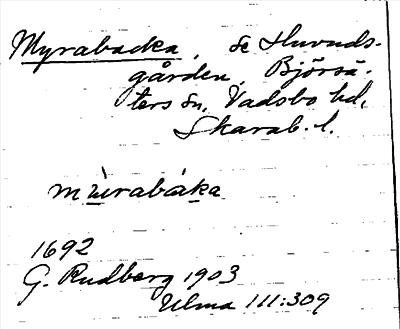 Myrabacka, se Huvuds-
gården, Björsä-
ters sn, Vadsbo hd,
Skarab. l.
mu̱̇rabákа
1692
G. Rudberg 1903
Ulma 111:309